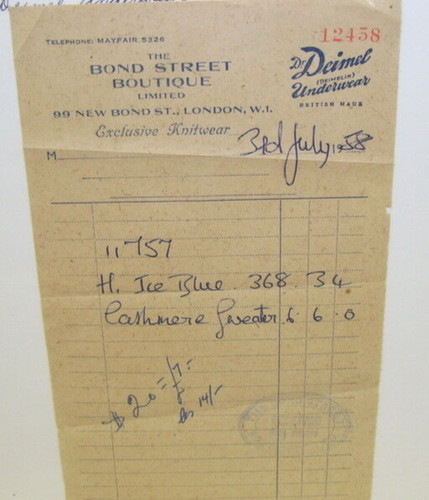 12458
TELEPHONE: MAYFAIR 5326
THE
BOND STREET
BOUTIQUE
LIMITED
99 NEW BOND ST., LONDON, W.1.
Exclusive Knitwear
Dr Deimel
(DEIMELIN)
Underwear
BRITISH MADE
3rd July 1958
M
11757
H. Ice Blue. 368. 34
Cashmere Sweater. 6 6. 0
$ 20 = 
14/-